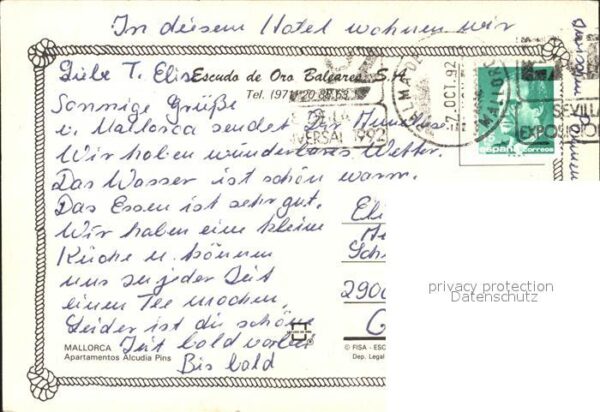 In diesem Hotel wohnen wir
Liebe T. Elis
Escudo de Oro Baleares, S.A.
Tel. (971) 20
Sonnige Grüße
u. Mallorca sendet Dir Anneliese.
Wir haben wunderbares Wetter.
Das Wasser ist schön warm.
Das Essen ist sehr gut.
Wir haben eine kleine
Küche u. können
uns zu jeder Zeit
einen Tee machen.
Leider ist die schöne
Zeit bald vorbei
Bis bald
PALMA DE MALLORCA
7.OCT.92
SEVILLA
EXPOSICION
VERSAL 1992
españa
correos
Eli
Sch
2900
privacy protection
Datenschutz
MALLORCA
Apartamentos Alcudia Pins
© FISA - ESC
Dep. Legal